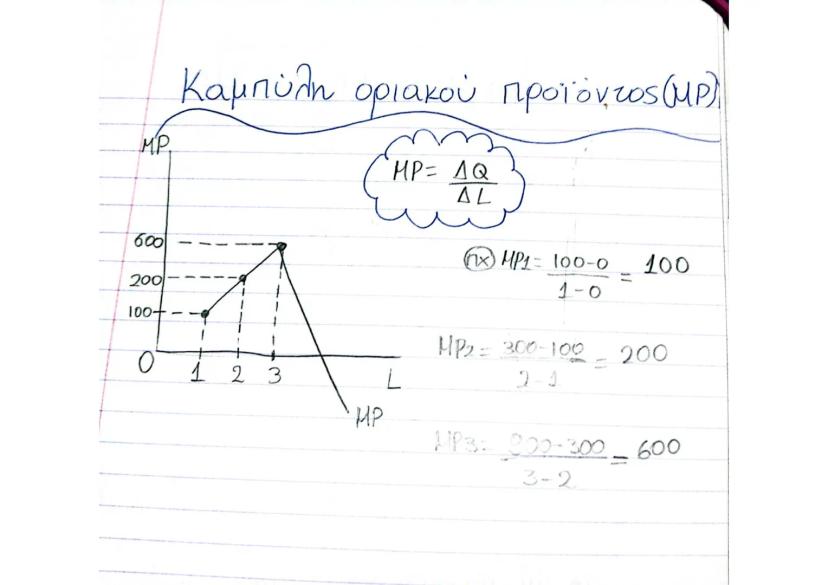 Καμπύλη οριακού προϊόντος (MP)
MP
MP = ΔQ
ΔL
600
200
100
0
1 2 3
L
MP
πχ MP1 = 100-0 = 100
1-0
MP2 = 300-100 = 200
2-1
MP3 = 00-300 = 600
3-2